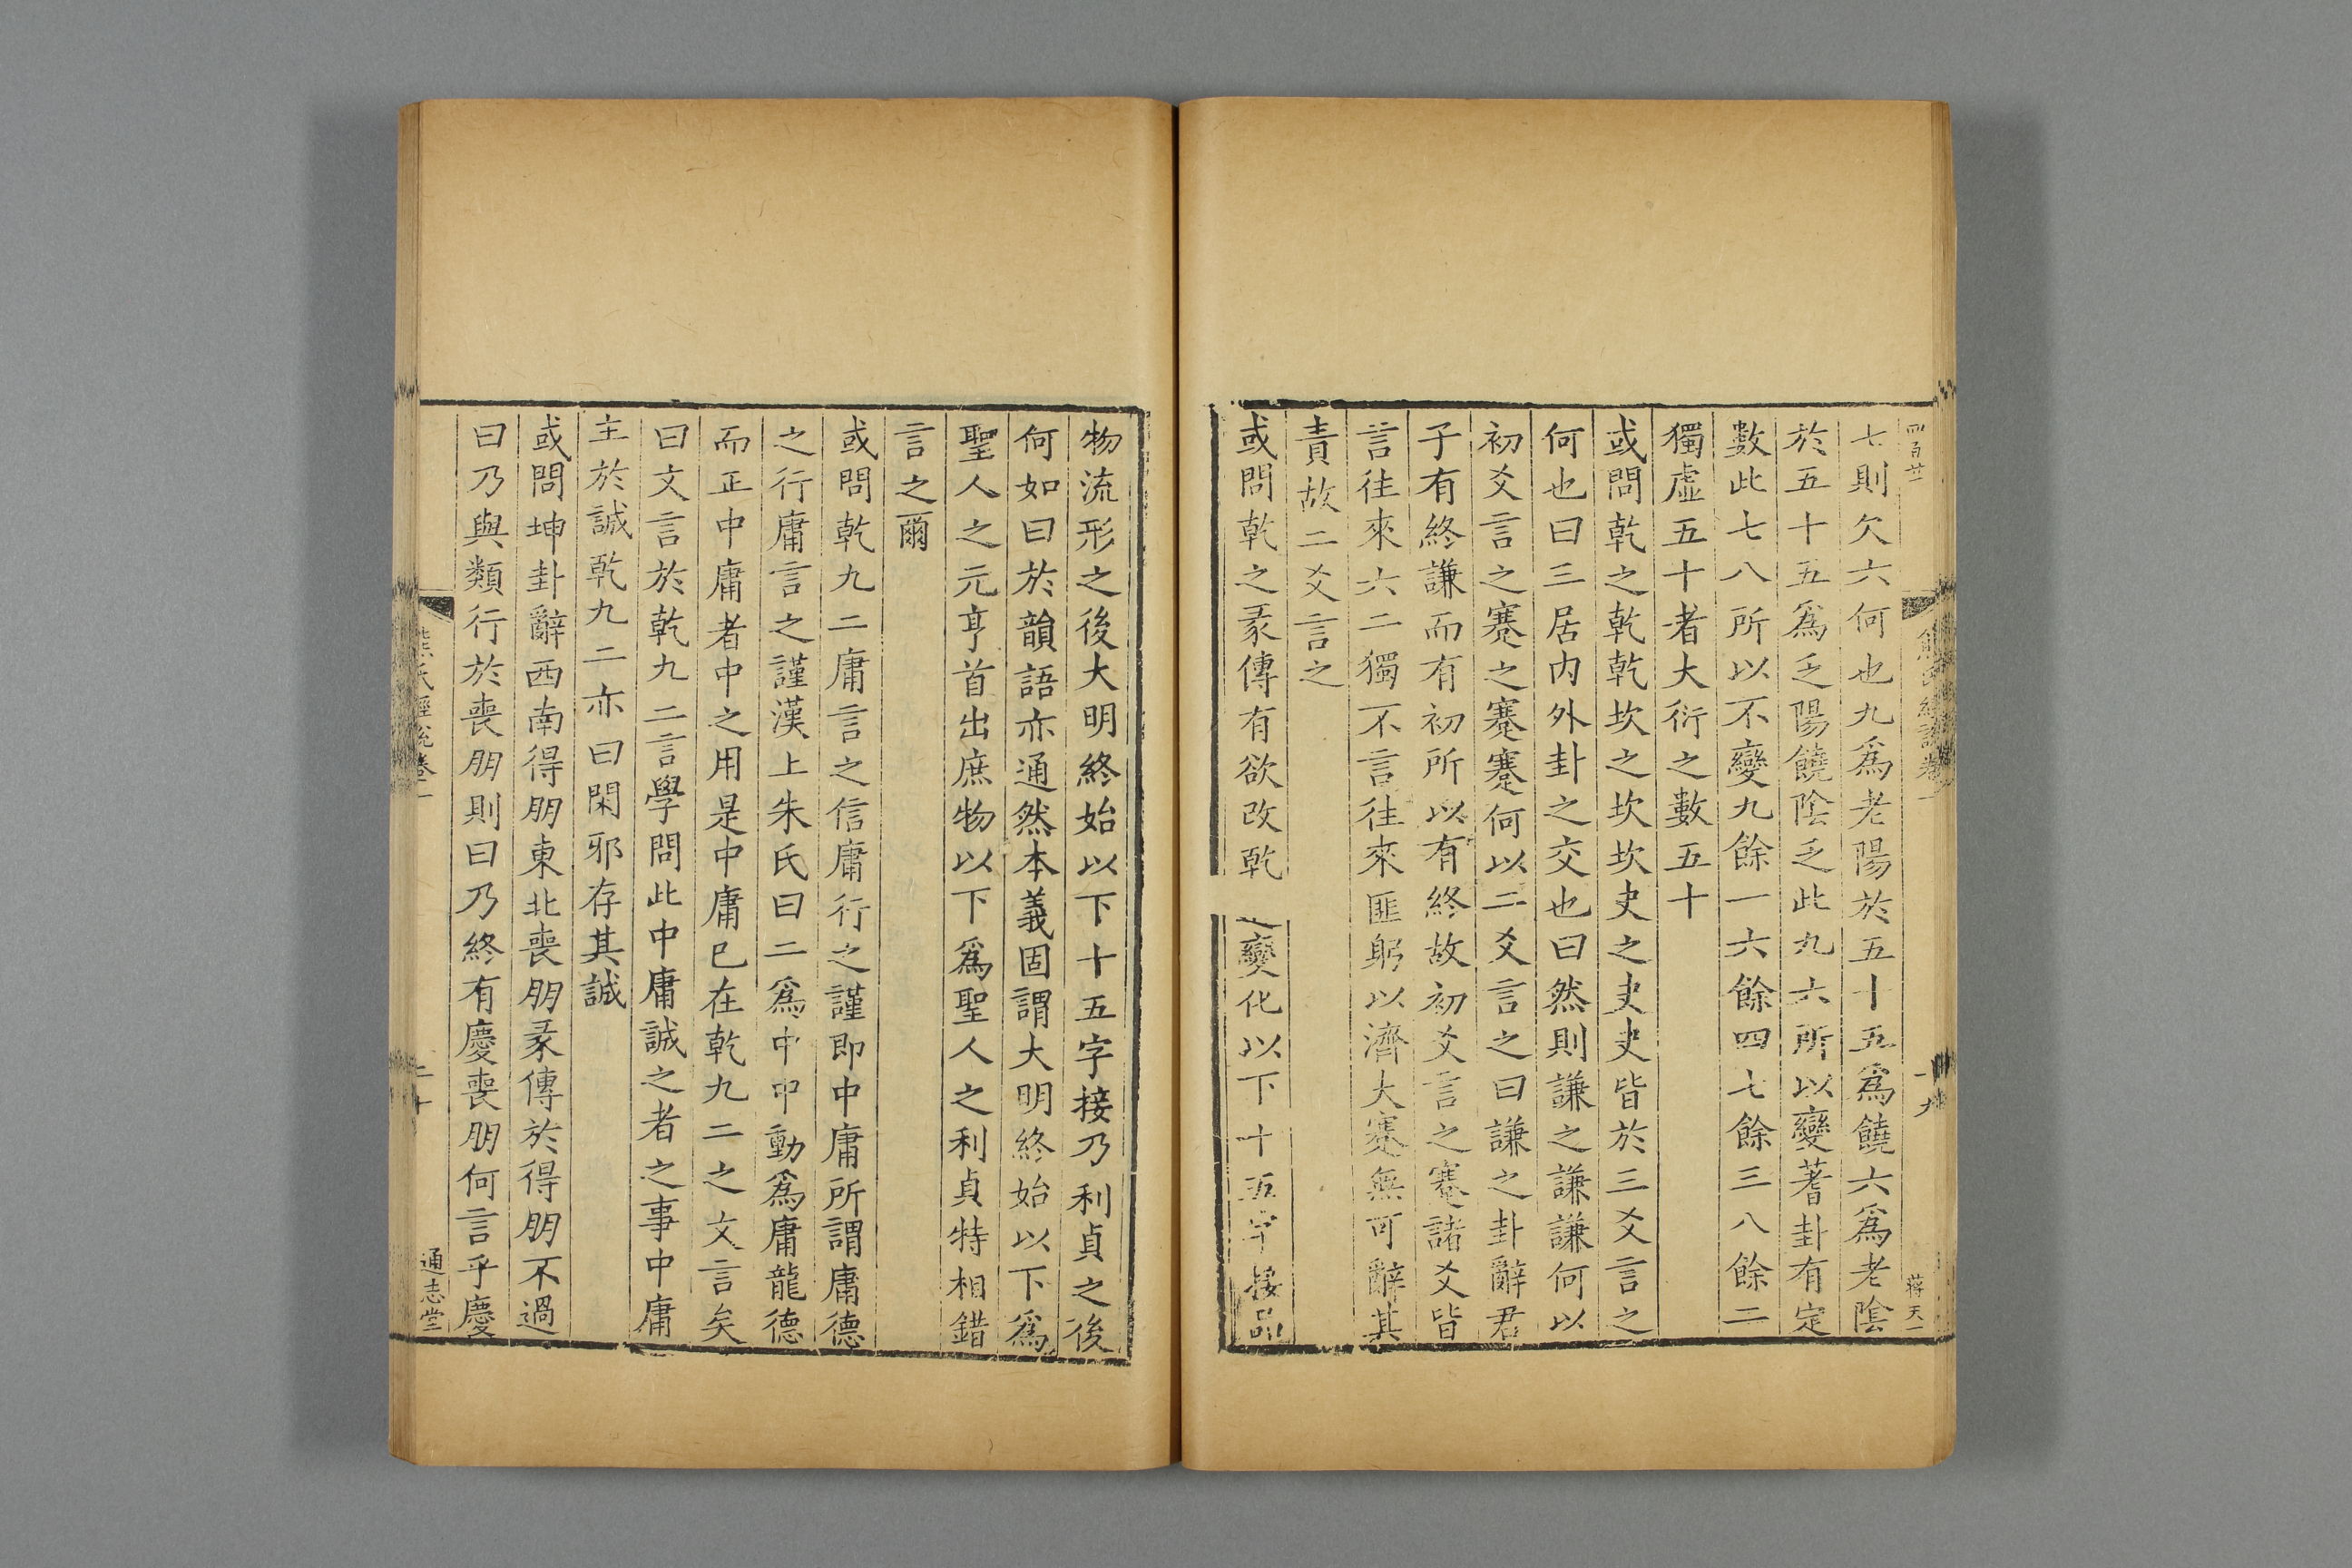 四百廿
七則欠六何也九爲老陽於五十五爲饒六爲老陰
於五十五爲乏陽饒陰乏此九六所以變蓍卦有定
數此七八所以不變九餘一六餘四七餘三八餘二
獨虛五十者大衍之數五十
或問乾之乾乾坎之坎坎夬之夬夬皆於三爻言之
何也曰三居內外卦之交也曰然則謙之謙謙何以
初爻言之蹇之蹇蹇何以二爻言之曰謙之卦辭君
子有終謙而有初所以有終故初爻言之蹇諸爻皆
言往來六二獨不言往來匪躬以濟大蹇無可辭其
責故二爻言之
或問乾之彖傳有欲改乾 變化以下十五字接品
蔣天一
物流形之後大明終始以下十五字接乃利貞之後
何如曰於韻語亦通然本義固謂大明終始以下爲
聖人之元亨首出庶物以下爲聖人之利貞特相錯
言之爾
或問乾九二庸言之信庸行之謹即中庸所謂庸德
之行庸言之謹漢上朱氏曰二爲中中動爲庸龍德
而正中庸者中之用是中庸已在乾九二之文言矣
曰文言於乾九二言學問此中庸誠之者之事中庸
主於誠乾九二亦曰閑邪存其誠
或問坤卦辭西南得朋東北喪朋彖傳於得朋不過
曰乃與類行於喪朋則曰乃終有慶喪朋何言乎慶
熊氏經說卷一
通志堂